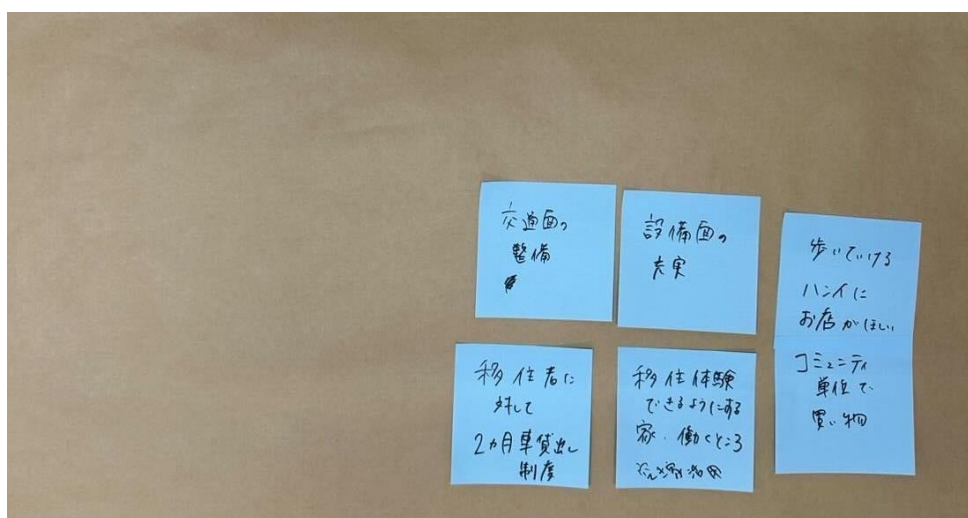 交通面の
整備
設備面の
充実
歩いていける
ハンイに
お店がほしい
移住者に
対して
2ヵ月車貸出し
制度
移住体験
できるようにする
家、働くところ
コミュニティ
単位で
買い物